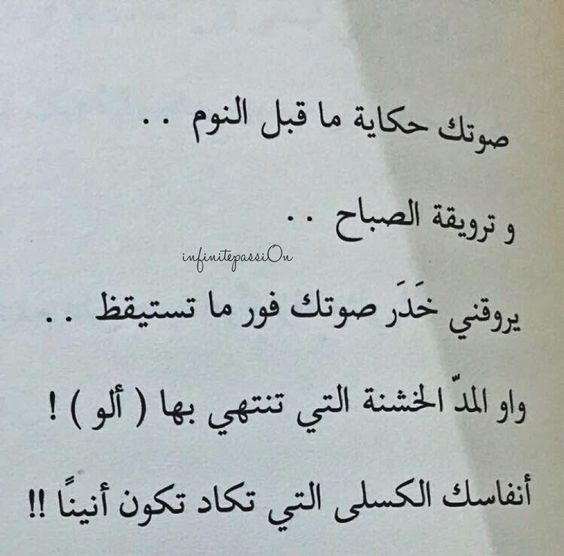 صوتك حكاية ما قبل النوم . .
و ترويقة الصباح . .
infinitepassiOn
يروقني خَدَر صوتك فور ما تستيقظ . .
واو المدّ الخشنة التي تنتهي بها ( ألو ) !
أنفاسك الكسلى التي تكاد تكون أنينًا !!